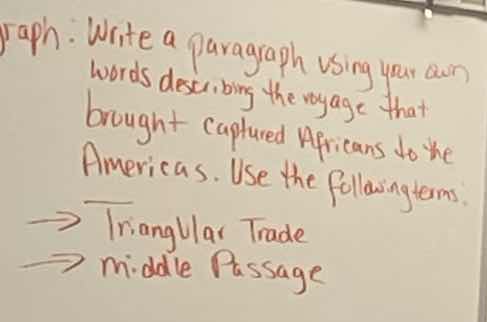 raph: Write a paragraph using your own
words describing the voyage that
brought captured Africans to the
Americas. Use the following terms:
→ Triangular Trade
→ Middle Passage